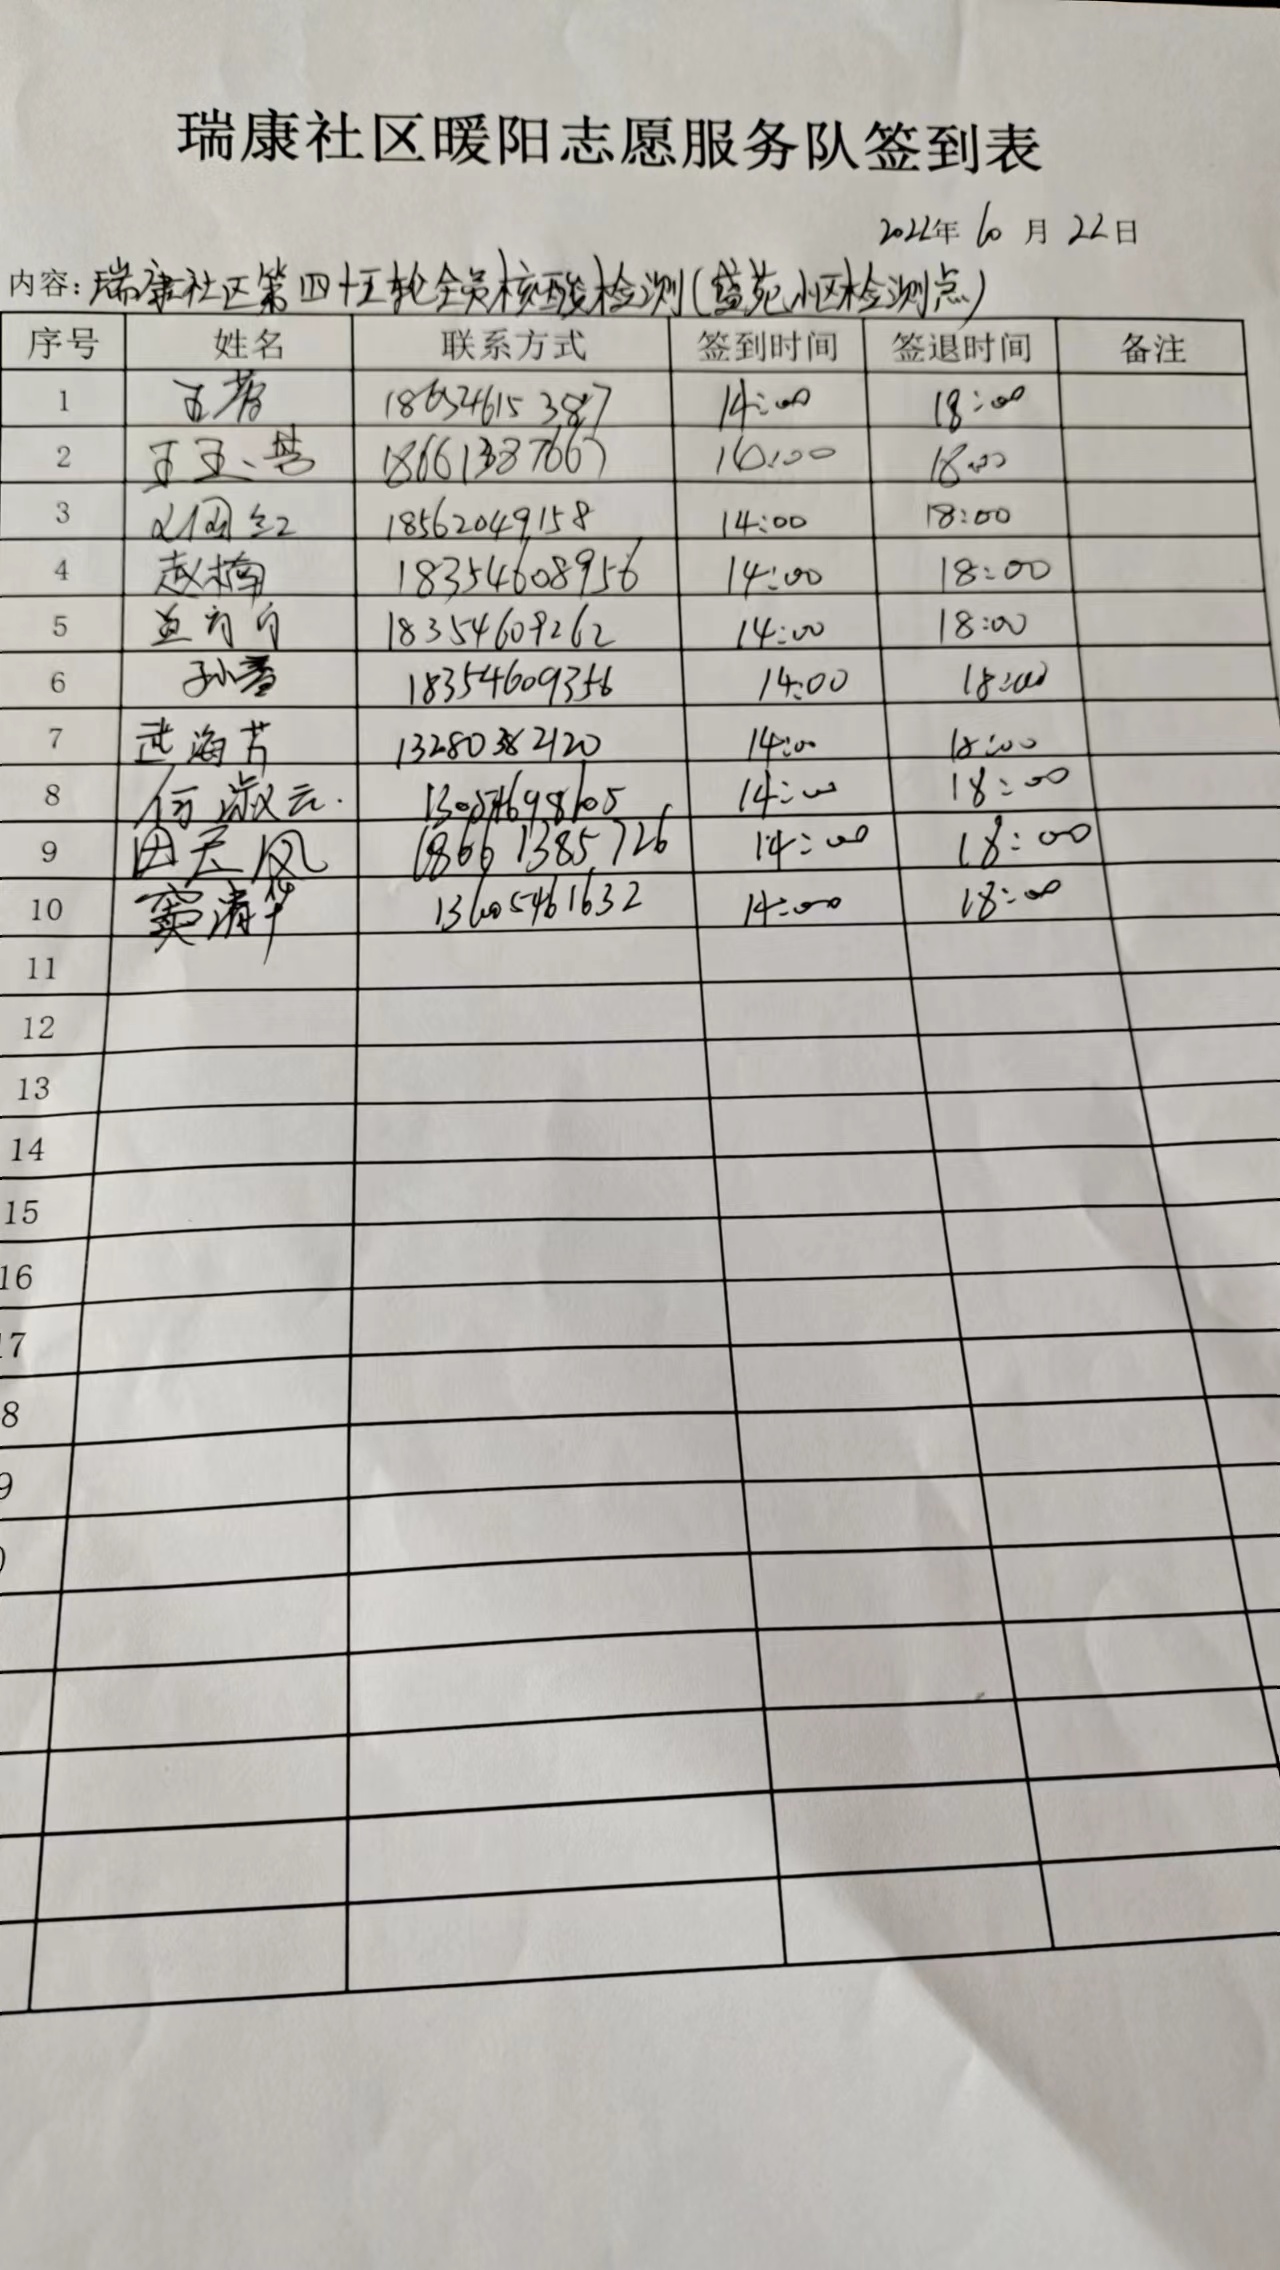 瑞康社区暖阳志愿服务队签到表
2022年 10 月 22日
内容:瑞康社区第四十五轮全员核酸检测(盛苑小区检测点)
序号 姓名 联系方式 签到时间 签退时间 备注
1 18654615387 14:00 18:00
2 18661387667 14:00 18:00
3 18562049158 14:00 18:00
4 赵楠 18354608956 14:00 18:00
5 18354609262 14:00 18:00
6 18354609356 14:00 18:00
7 武海芳 13280382120 14:00 18:00
8 何淑云 14:00 18:00
9 田天风 18661385726 14:00 18:00
10 窦清华 13605461632 14:00 18:00
11
12
13
14
15
16
17
8
9